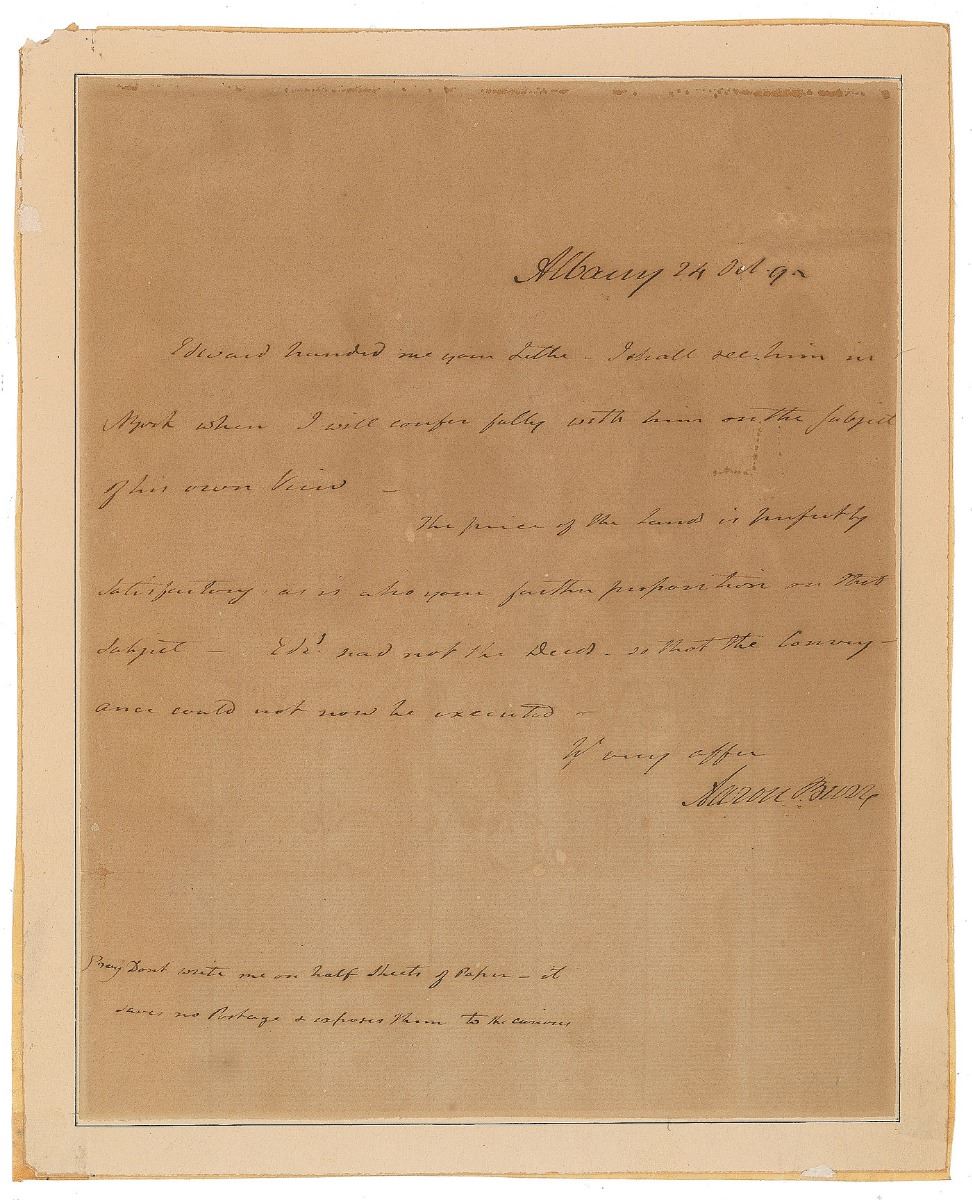 Albany 24 Oct. 9
Edward handed me your Letter - I shall see him in
NYork when I will confer fully with him on the subject
of his own View -
The price of the Land is perfectly
satisfactory as is also your further proposition on that
subject - Edd. had not the Deed - so that the Convey-
ance could not now be executed -
Yr very affec
Aaron Burr
Pray Dont write me on half sheets of Paper - it
saves no Postage & exposes them to the curious